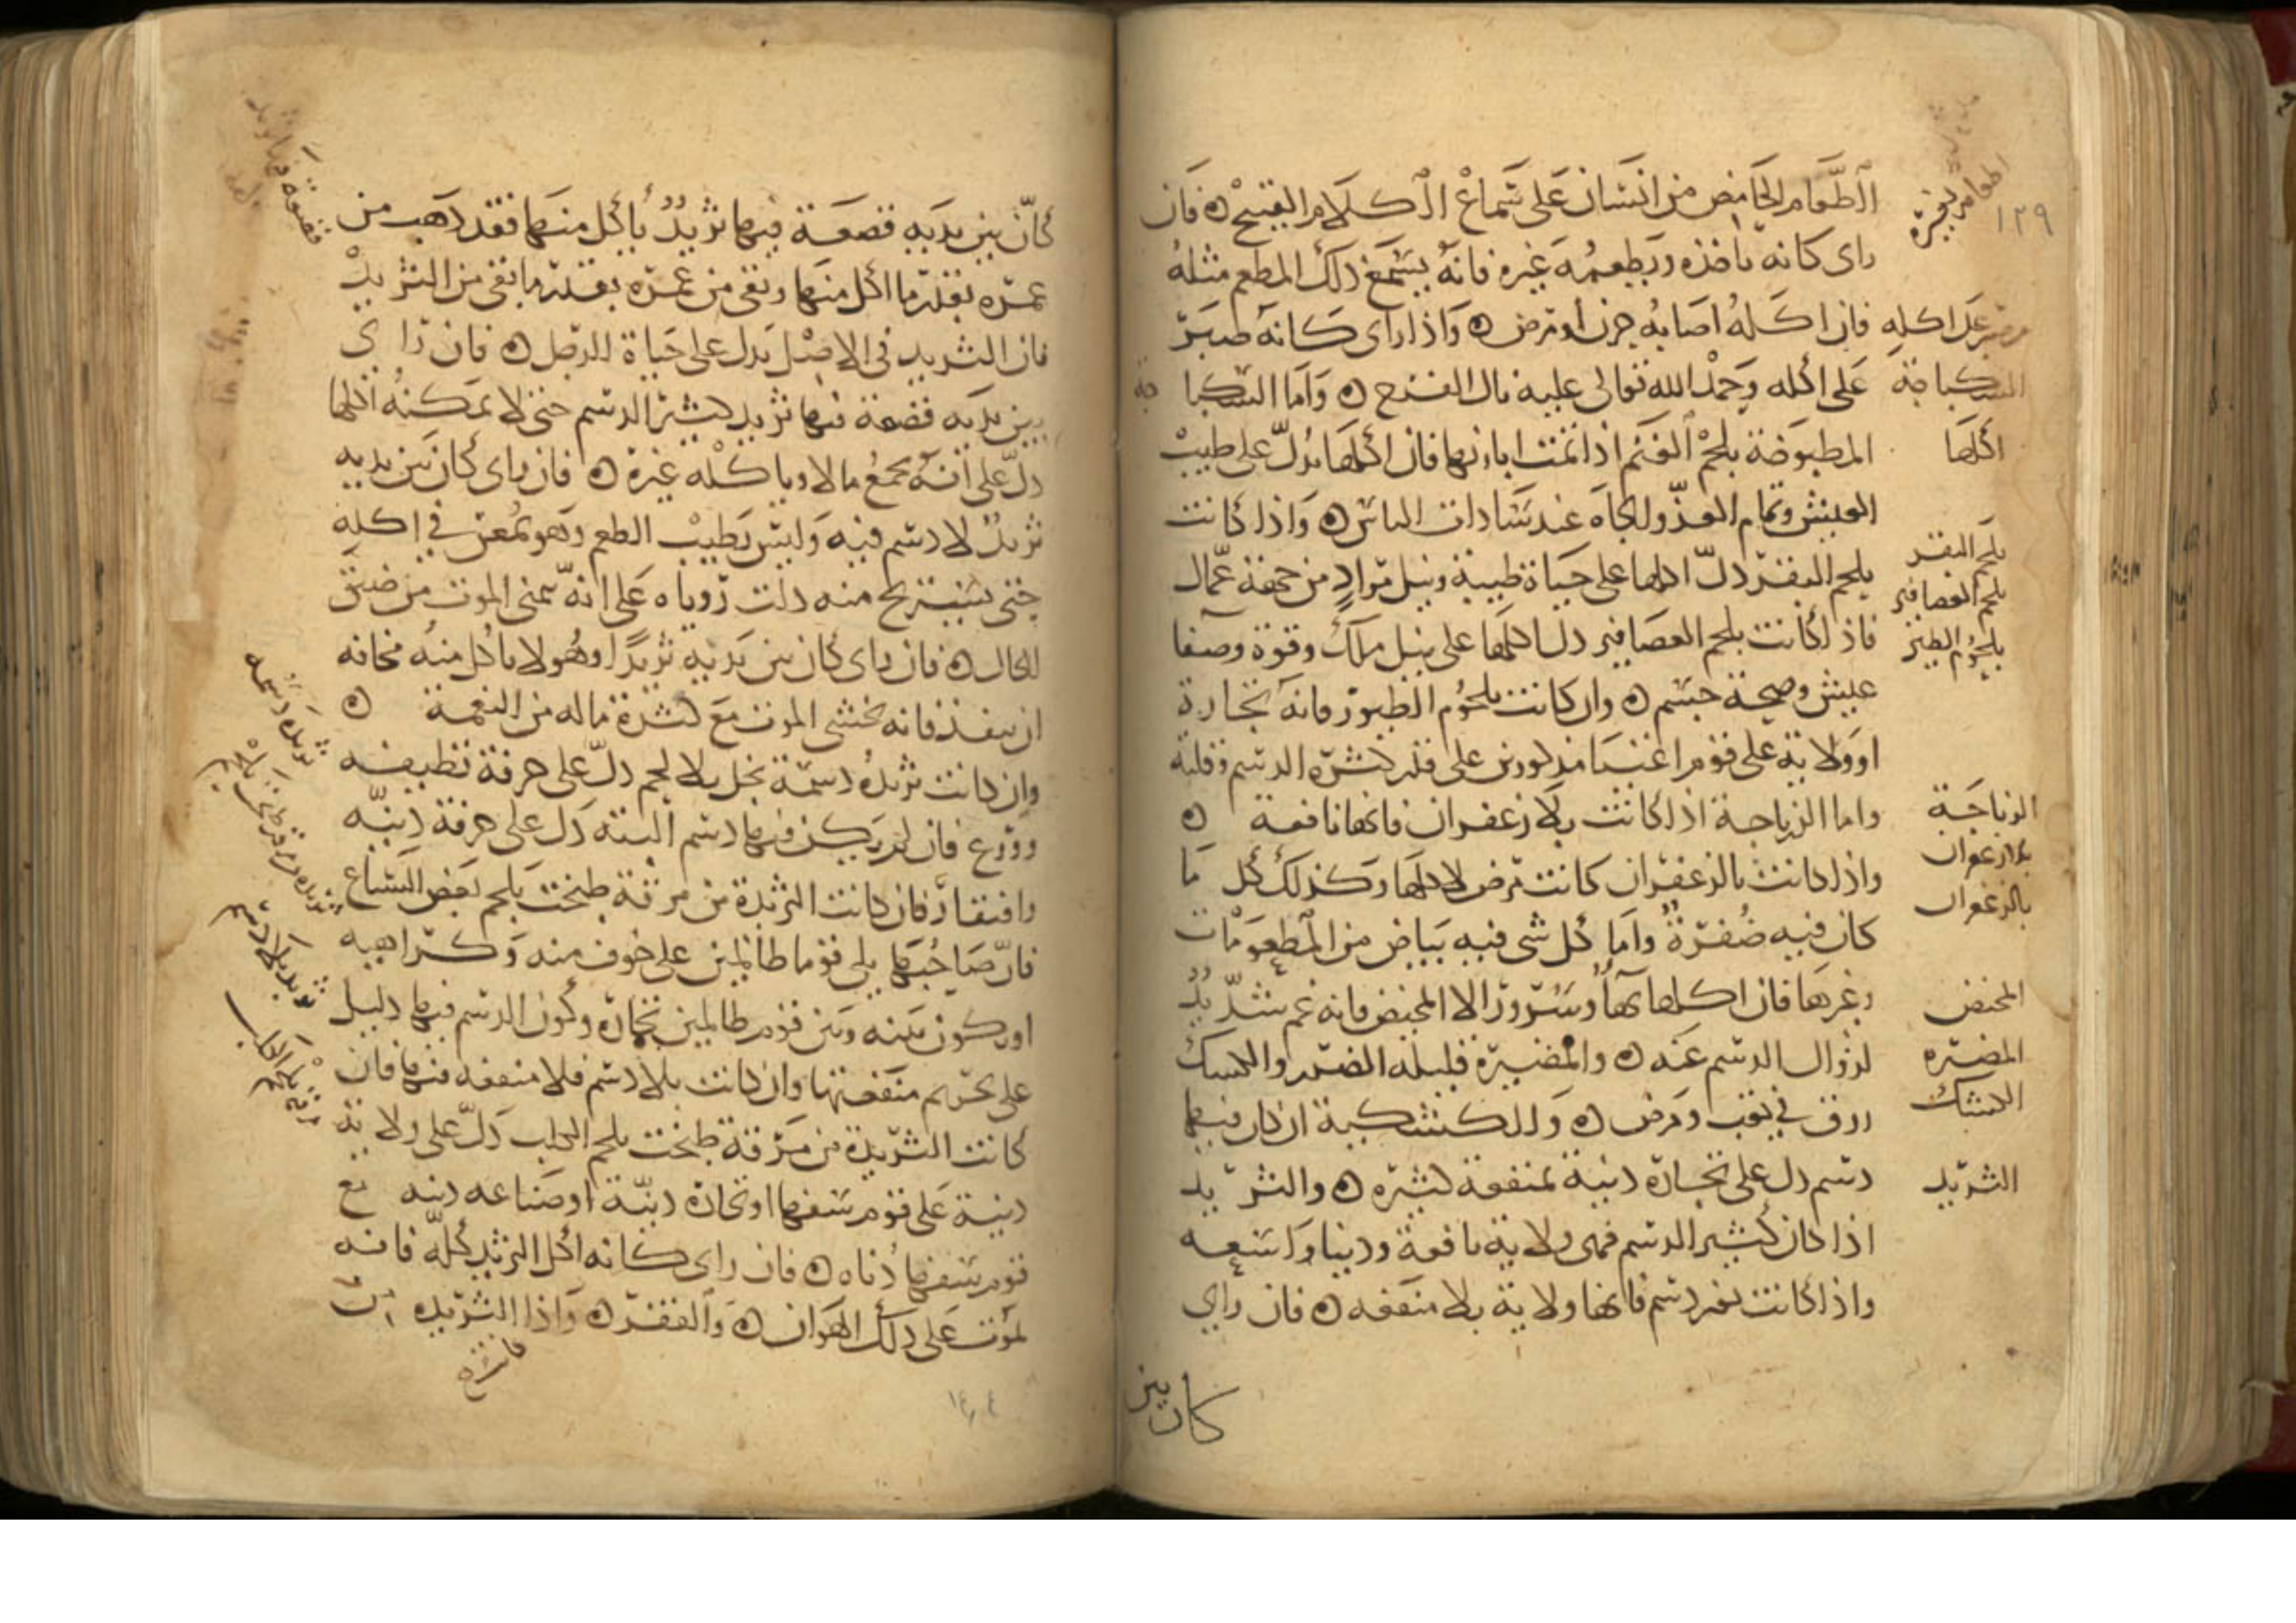 الطعام الحامض من انسان على سماع الكلام القبيح ه فان
راى كانه ياخذه ويطعمه غيره فانه يسمع ذلك المطعم مثله
فان اكله اصابه حزن او مرض ه واذا راى كانه صبر
على اكله وحمد الله تعالى عليه نال الفرح ه واما السكبا جة
المطبوخة بلحم الغنم اذا تمت ابازيرها فان اكلها يدل على طيب
العيش وتمام العز والجاه عند سادات الناس ه واذا كانت
بلحم البقر دل اكلها على حياة طيبة ونيل مراد من جهة عمال
فاذا كانت بلحم العصافير دل اكلها على نيل ملك وقوة وصفا
عيش وصحة جسم ه وان كانت بلحوم الطيور فانه تجارة
او ولاية على قوم اغنيا مذكورين على قدر كثرة الدسم وقلته
واما الزرباجة اذا كانت بلا زعفران فانها نافعة ه
واذا كانت بالزعفران كانت مرض لاكلها وكذلك كل ما
كان فيه صفرة واما كل شى فيه بياض من المطعومات
وغيرها فان اكلها بهاء وسرور الا المخيض فانه غم شديد
لزوال الدسم عنه ه والمضيرة قليلة الضرر والكسك
رزق في تعب ومرض ه والكشكية ان كان فيها
دسم دل على تجارة دنية بمنفعة كثيرة ه والثريد
اذا كان كثير الدسم فهى ولاية نافعة ودنيا واسعه
واذا كانت بغير دسم فانها ولاية بلا منفعه ه فان راي
كان بين
١٢٩
اكلها
بلحم البقر
بلحم العصافير
بلحوم الطير
الزرباجة
بلا زعفران
بالزعفران
المخيض
المضيره
الكشك
الثريد
كان بين يديه قصعة فيها ثريد ياكل منها فقد ذهب من
عمره بقدر ما اكل منها وبقى من عمره بقدر ما بقى من الثريد
فان الثريد في الاصل يدل على حياة الرجل ه فان راي
بين يديه قصعة فيها ثريد كثير الدسم حتى لا يمكنه اكلها
دل على انه يجمع مالا وياكله غيره ه فان راى كان بين يديه
ثريد لا دسم فيه وليس بطيب الطعم وهو يمعن في اكله
حتى يستريح منه دلت روياه على انه يتمنى الموت من ضيق
الحال ه فان راى كان بين يديه ثريدا وهو لا ياكل منه مخافه
ان ينفذ فانه يخشى الموت مع كثرة ماله من النعمة ه
وان كانت ثريده دسمة بخل بلا لحم دل على حرفة نظيفه
وورع فان لم يكن فيها دسم البته دل على حرفة دنيه
وافتقار فان كانت الثريدة من مرقة طبخت بلحم بعض السباع
فان صاحبها يلي قوما ظالمين على خوف منه وكراهيه
او يكون بينه وبين قوم ظالمين تجارة وكون الدسم فيها دليل
على تحريم منفعتها وان كانت بلا دسم فلا منفعه فيها فان
كانت الثريدة من مرقة طبخت بلحم الكلب دل على ولاية
دنية على قوم سفها او تجارة دنية او صناعه دنيه مع
قوم سفها دناه ه فان راى كانه اكل الثريد كله فانه
يموت على ذلك الهوان ه والفقر ه واذا الثريده
ثريده دسمه
ثريد بلا دسم
مرقة بلحم الكلب